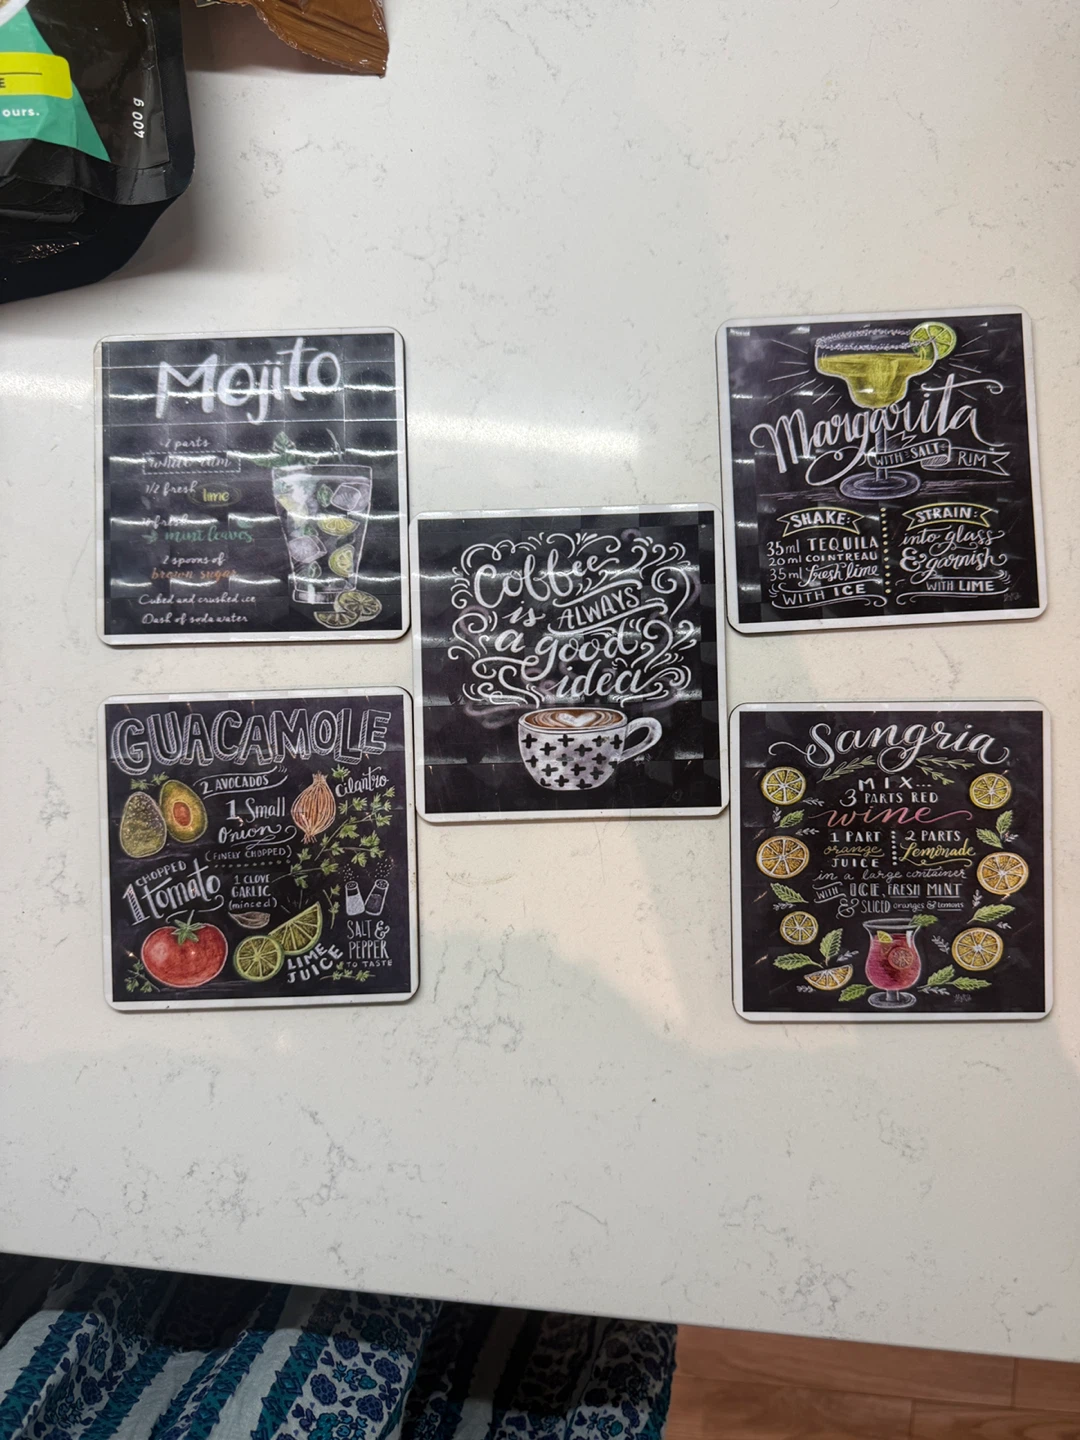 E
ours.
400 g
Mojito
2 parts
white rum
1/2 fresh lime
fresh
mint leaves
2 spoons of
brown sugar
Cubed and crushed ice
Dash of soda water
Margarita
WITH SALT RIM
SHAKE:
35ml TEQUILA
20ml COINTREAU
35ml fresh lime
WITH ICE
STRAIN:
into glass
& garnish
WITH LIME
Coffee
is ALWAYS
a good
idea
GUACAMOLE
2 AVOCADOS
1 Small
Onion
(FINELY CHOPPED)
Cilantro
1 CHOPPED
tomato
1 CLOVE
GARLIC
(minced)
LIME
JUICE
SALT &
PEPPER
TO TASTE
Sangria
MIX...
3 PARTS RED
wine
1 PART
orange
JUICE
2 PARTS
Lemonade
in a large container
WITH ICE, FRESH MINT
& SLICED oranges & lemons